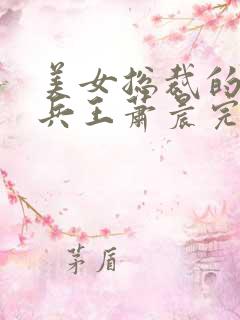 美女总裁的
兵王萧晨完
茅盾